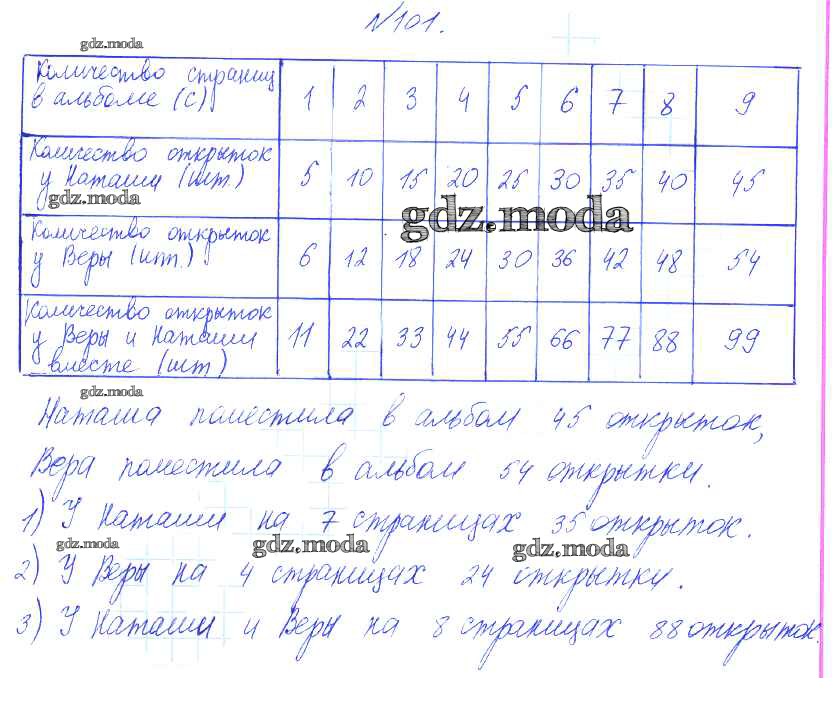 №101.
gdz.moda
Количество страниц
в альбоме (с) 1 2 3 4 5 6 7 8 9
Количество открыток
у Наташи (шт.) 5 10 15 20 25 30 35 40 45
gdz.moda
gdz.moda
Количество открыток
у Веры (шт.) 6 12 18 24 30 36 42 48 54
Количество открыток
у Веры и Наташи 11 22 33 44 55 66 77 88 99
вместе (шт)
gdz.moda
Наташа поместила в альбом 45 открыток,
Вера поместила в альбом 54 открытки.
1) У Наташи на 7 страницах 35 открыток.
gdz.moda gdz.moda gdz.moda
2) У Веры на 4 страницах 24 открытки.
3) У Наташи и Веры на 8 страницах 88 открыток.